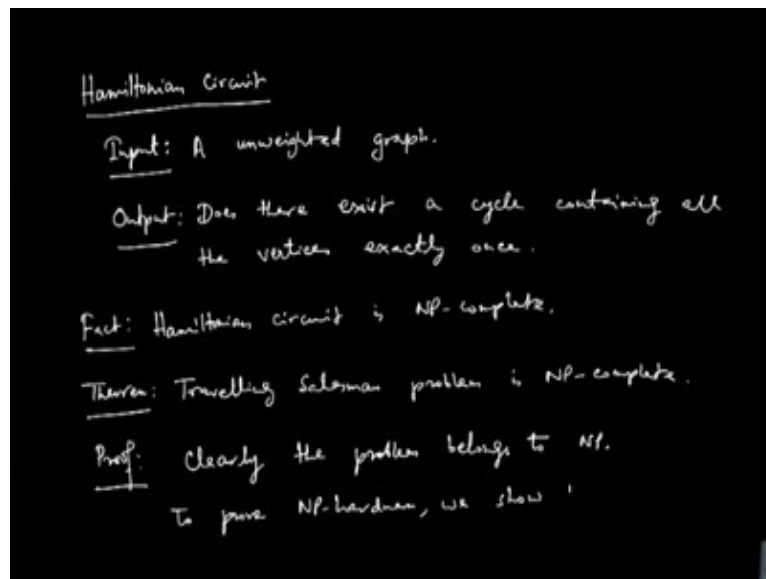 Hamiltonian Circuit
Input: A unweighted graph.
Output: Does there exist a cycle containing all
the vertices exactly once.
Fact: Hamiltonian circuit is NP-complete.
Theorem: Travelling Salesman problem is NP-complete.
Proof: Clearly the problem belongs to NP.
To prove NP-hardness, we show